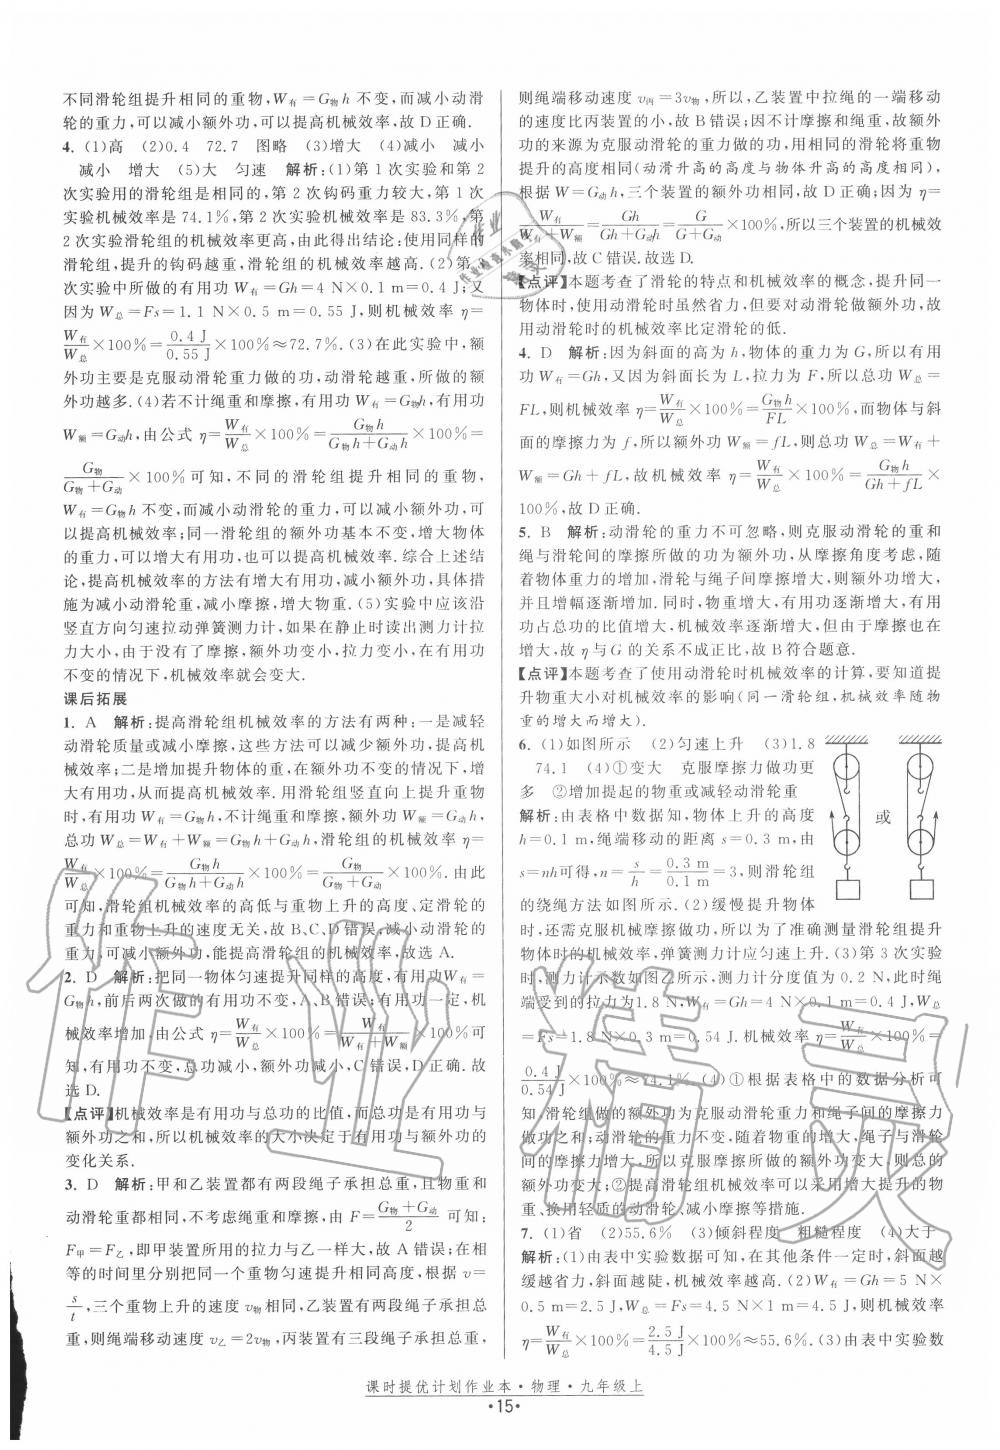 不同滑轮组提升相同的重物,W有=G物h 不变,而减小动滑
轮的重力,可以减小额外功,可以提高机械效率,故 D 正确.
4. (1)高 (2)0.4 72.7 图略 (3)增大 (4)减小 减小
减小 增大 (5)大 匀速 解析:(1)第 1 次实验和第 2
次实验用的滑轮组是相同的,第 2 次钩码重力较大,第 1 次
实验机械效率是 74.1%,第 2 次实验机械效率是 83.3%,第
2 次实验滑轮组的机械效率更高,由此得出结论:使用同样的
滑轮组,提升的钩码越重,滑轮组机械效率越高.(2)第 3
次实验中所做的有用功 W有=Gh=4 N×0.1 m=0.4 J;又
因为 W总=Fs=1.1 N×0.5 m=0.55 J,则机械效率 η=
W有/W总×100%=0.4 J/0.55 J×100%≈72.7%.(3)在此实验中,额
外功主要是克服动滑轮重力做的功,动滑轮越重,所做的额
外功越多.(4)若不计绳重和摩擦,有用功 W有=G物h,有用功
W额=G动h,由公式 η=W有/W总×100%=G物h/(G物h+G动h)×100%=
G物/(G物+G动)×100%可知,不同的滑轮组提升相同的重物,
W有=G物h 不变,而减小动滑轮的重力,可以减小额外功,可
以提高机械效率;同一滑轮组的额外功基本不变,增大物体
的重力,可以增大有用功,也可以提高机械效率.综合上述结
论,提高机械效率的方法有增大有用功,减小额外功,具体措
施为减小动滑轮重,减小摩擦,增大物重.(5)实验中应该沿
竖直方向匀速拉动弹簧测力计,如果在静止时读出测力计拉
力大小,由于没有了摩擦,额外功变小,拉力变小,在有用功
不变的情况下,机械效率就会变大.
课后拓展
1. A 解析:提高滑轮组机械效率的方法有两种:一是减轻
动滑轮质量或减小摩擦,这些方法可以减小额外功,提高机
械效率;二是增加提升物体的重,在额外功不变的情况下,增
大有用功,提高机械效率.用滑轮组竖直向上提升重物
时,有用功 W有=G物h,不计绳重和摩擦,额外功 W额=G动h,
总功 W总=W有+W额=G物h+G动h,滑轮组的机械效率 η=
W有/W总×100%=G物h/(G物h+G动h)×100%=G物/(G物+G动)×100%.由此
可知,滑轮组机械效率的高低与重物上升的高度、定滑轮的
重力和重物上升的速度无关,故 B、C、D 错误;减小动滑轮的
重力,可减小额外功,能提高滑轮组的机械效率,故选 A.
2. D 解析:把同一物体匀速提升同样的高度,有用功W有=
G物h,前后两次做的有用功不变,A、B 错误;有用功一定,机
械效率增加,由公式 η=W有/W总×100%=W有/(W有+W额)×100%可
知,有用功不变,总功减小,额外功减小,C 错误,D 正确.故
选 D.
【点评】机械效率是有用功与总功的比值,而总功是有用功与
额外功之和,所以机械效率的大小决定于有用功与额外功的
变化关系.
3. D 解析:甲和乙装置都有两段绳子承担总重,且物重和
动滑轮重都相同,不考虑绳重和摩擦,由 F=(G物+G动)/2 可知:
F甲=F乙,即甲装置所用的拉力与乙一样大,故 A 错误;在相
等的时间里分别把同一个重物匀速提升相同高度,根据 v=
s/t,三个重物上升的速度 v物相同,乙装置有两段绳子承担总
重,则绳端移动速度 v乙=2v物,丙装置有三段绳子承担总重,
则绳端移动速度 v丙=3v物,所以,乙装置中拉绳的一端移动
的速度比丙装置的小,故 B 错误;因不计摩擦和绳重,故额外
功的来源为克服动滑轮的重力做的功,用相同的滑轮将重物
提升的高度相同(动滑升高的高度与物体升高的高度相同),
根据 W=G动h,三个装置的额外功相同,故 D 正确;因为 η=
W有/(W有+W额)=Gh/(Gh+G动h)=G/(G+G动)×100%,所以三个装置的机械效
率相同,故 C 错误.故选 D.
【点评】本题考查了滑轮的特点和机械效率的概念,提升同一
物体时,使用动滑轮时虽然省力,但要对动滑轮做额外功,故
用动滑轮时的机械效率比定滑轮的低.
4. D 解析:因为斜面的高为 h,物体的重力为 G,所以有用
功 W有=Gh,又因为斜面长为 L,拉力为 F,所以总功 W总=
FL,则机械效率 η=W有/W总×100%=G物h/FL×100%,而物体与斜
面的摩擦力为 f,所以额外功 W额=fL,则总功 W总=W有+
W额=Gh+fL,故机械效率 η=W有/W总×100%=G物h/(Gh+fL)×
100%,故 D 正确.
5. B 解析:动滑轮的重力不可忽略,则克服动滑轮的重和
绳与滑轮间的摩擦所做的功为额外功,从摩擦角度考虑,随
着物体重力的增加,滑轮与绳子间摩擦增大,则额外功增大,
并且增幅逐渐增加.同时,物重增大,有用功逐渐增大,有用
功占总功的比值增大,机械效率逐渐增大,但由于摩擦也逐渐
增大,故 η 与 G 的关系不成正比,故 B 符合题意.
【点评】本题考查了使用动滑轮时机械效率的计算,要知道提
升物重大小对机械效率的影响(同一滑轮组,机械效率随物
重的增大而增大).
6. (1)如图所示 (2)匀速上升 (3)1.8
74.1 (4)①变大 克服摩擦力做功更
多 ②增加提起的物重或减轻动滑轮重
解析:由表格中数据知,物体上升的高度
h=0.1 m,绳端移动的距离 s=0.3 m,由
s=nh可得,n=s/h=0.3 m/0.1 m=3,则滑轮组
的绕绳方法如图所示.(2)缓慢提升物体
或
时,还需克服机械摩擦做功,所以为了准确测量滑轮组提升
物体时的机械效率,弹簧测力计应匀速上升.(3)第 3 次实验
时,测力计示数如图乙所示,测力计分度值为 0.2 N,此时绳
端受到的拉力为1.8 N,W有=Gh=4 N×0.1 m=0.4 J,W总
=Fs=1.8 N×0.3 m=0.54 J.机械效率 η=W有/W总×100%=
0.4 J/0.54 J×100%≈74.1%.(4)①根据表格中的数据分析可
知,滑轮组做的额外功为克服动滑轮重力和绳子间的摩擦力
做功之和,动滑轮的重力不变,随着物重的增大,绳子与滑轮
间的摩擦力增大,所以克服摩擦所做的功增大,所以总的额
外功增大;②提高滑轮组机械效率可以采用增大提升的物
重、换用轻质的动滑轮,减小机械摩擦等措施.
7. (1)省 (2)55.6% (3)倾斜程度 粗糙程度 (4)大于
解析:(1)由表中实验数据可知,在其他条件一定时,斜面越
缓越省力,斜面越陡,机械效率越高.(2)W有=Gh=5 N×
0.5 m=2.5 J,W总=Fs=4.5 N×1 m=4.5 J,则机械效率
η=W有/W总×100%=2.5 J/4.5 J×100%≈55.6%.(3)由表中实验数
课时提优计划作业本·物理·九年级上
·15·
作业精灵